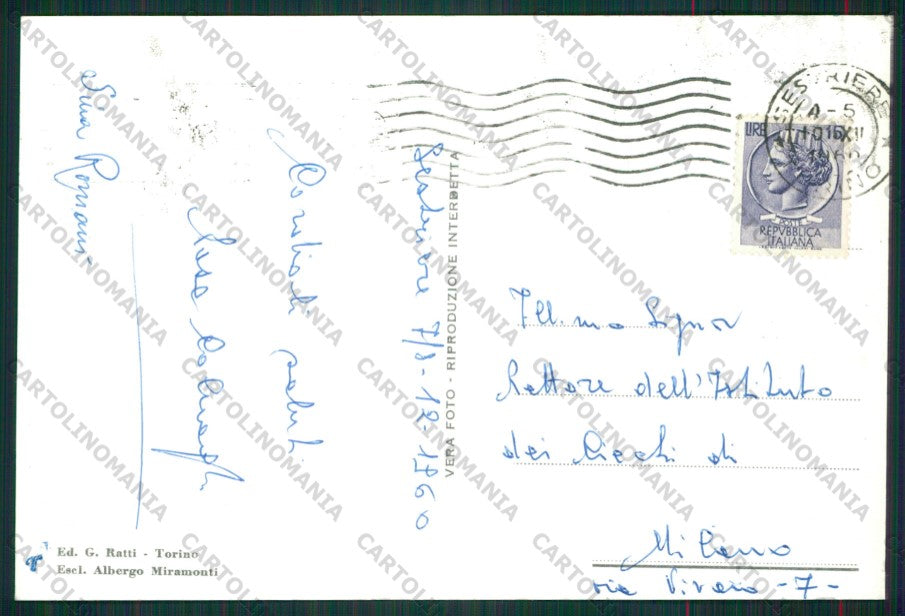 Sestriere 7/8-12-1960
Cordiali saluti
Rosa
Silvia Romani
VERA FOTO - RIPRODUZIONE INTERDETTA
Ed. G. Ratti - Torino
Escl. Albergo Miramonti
SESTRIERE
LIRE 15
POSTE
REPVBBLICA
ITALIANA
Ill.mo Signor
Rettore dell'Istituto
dei Ciechi di
Milano
via Vivaio -7-
CARTOLINOMANIA